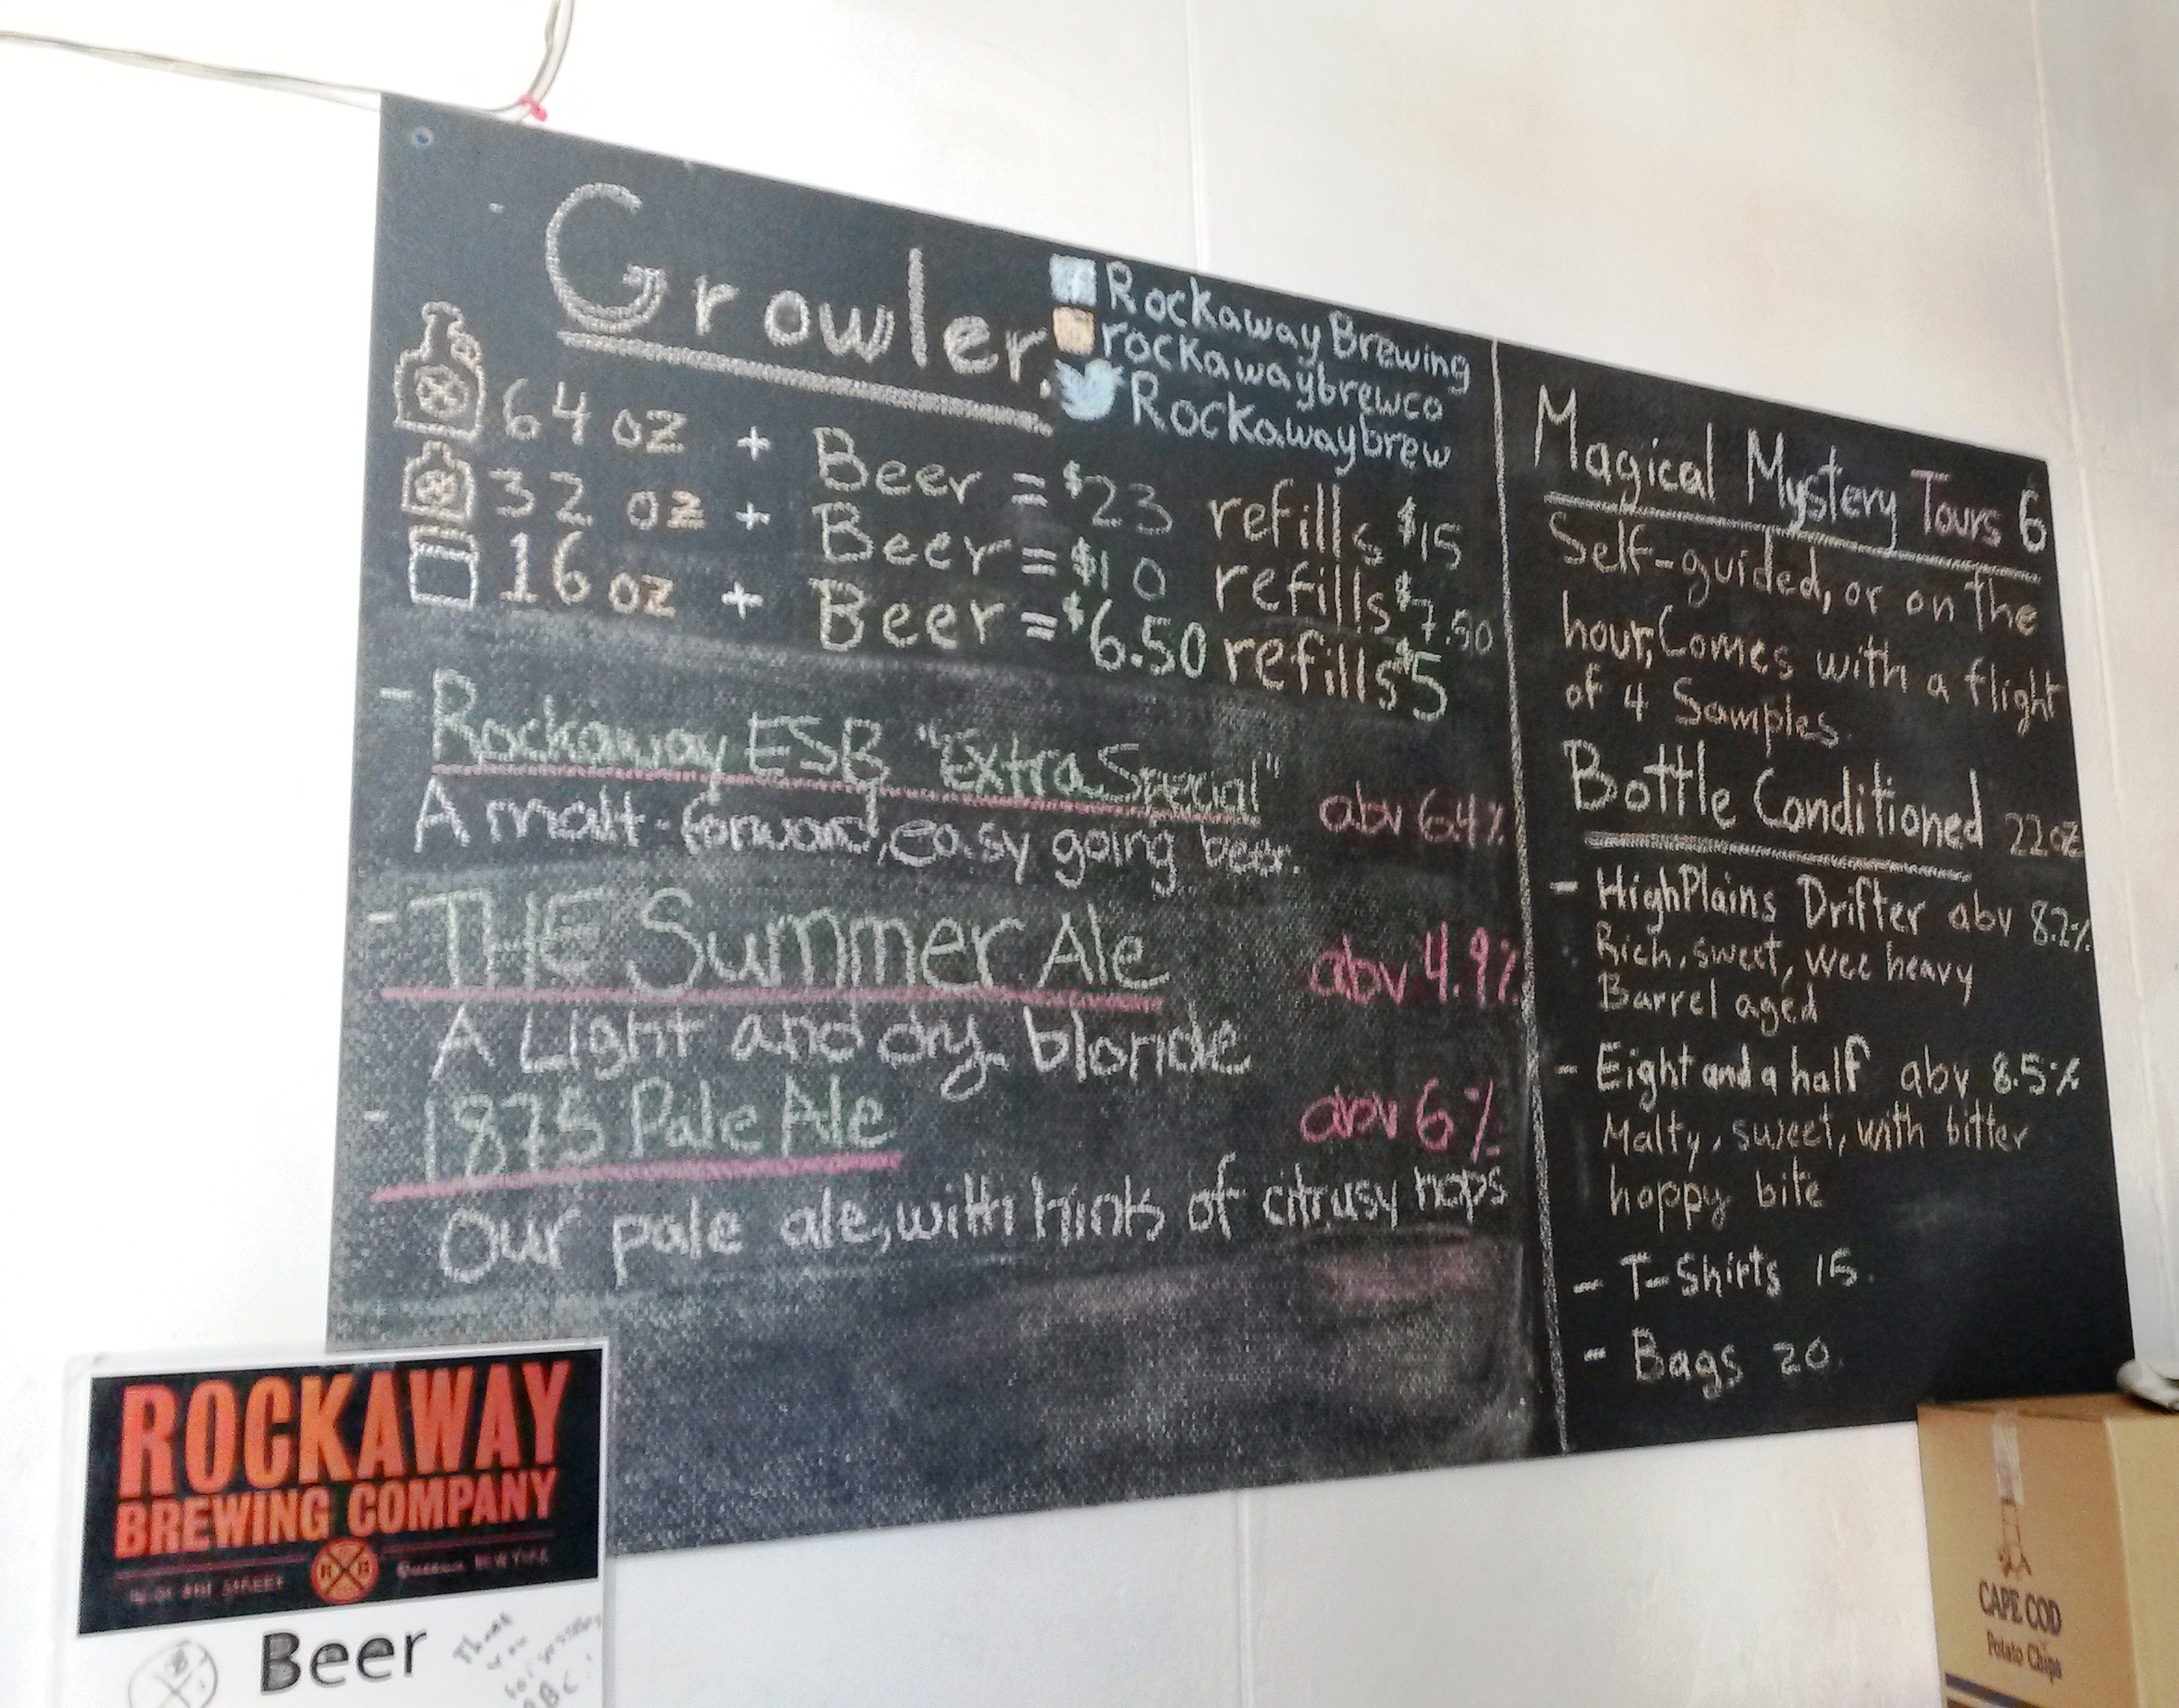 Growler.
RockawayBrewing
rockawaybrewco
Rockawaybrew
64 oz + Beer = $23 refills $15
32 oz + Beer = $10 refills $7.50
16 oz + Beer = $6.50 refills $5
- Rockaway ESB "Extra Special"
A malt-forward, easy going beer. abv 6.4%
- THE Summer Ale abv 4.9%
A Light and dry blonde
- 1875 Pale Ale abv 6%
Our pale ale, with hints of citrusy hops
Magical Mystery Tours 6
Self-guided, or on the
hour, Comes with a flight
of 4 Samples.
Bottle Conditioned 22oz
- HighPlains Drifter abv 8.2%
Rich, sweet, wee heavy
Barrel aged
- Eight and a half abv 8.5%
Malty, sweet, with bitter
hoppy bite
- T-Shirts 15.
- Bags 20.
ROCKAWAY
BREWING COMPANY
STREET Queens NEW YORK
Beer
Thank
you
CAPE COD
Potato Chips